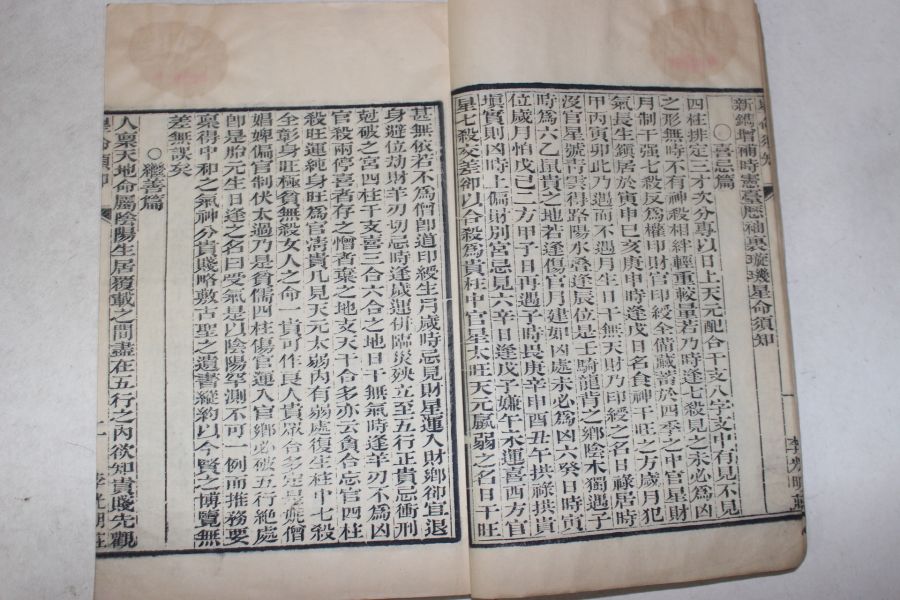 新鐫增補時憲臺歷袖裏璇璣星命須知
○喜忌篇
四柱排定三才次分專以日上天元配合干支八字支中有見不見
之形無時不有神殺相絆輕重較量若乃時逢七殺見之未必為凶
月制干强七殺反為權印財官印綬全備藏蓄於四季之中官星財
氣長生鎮居於寅申巳亥庚申時逢戊日名食神干旺之方歲月犯
甲丙寅卯此乃遇而不遇月生日干無天財乃印綬之名日祿居時
沒官星號青雲得路陽水叠逢辰位是壬騎龍背之鄉陰木獨遇子
時為六乙鼠貴之地若逢傷官月建如凶處未必為凶六癸日時寅
位歲月怕戊己二方甲子日再遇子時畏庚辛申酉丑午拱祿拱貴
塡實則凶時上偏財別宮忌見六辛日逢戊子嫌午未運喜西方官
星七殺交差卻以合殺為貴柱中官星太旺天元羸弱之名日干旺
甚無依若不為僧卽道印綬生月歲時忌見財星運入財鄉卻宜退
身避位劫財羊刃切忌時逢歲運併臨災殃立至五行正貴忌衝刑
剋破之宮四柱干支喜三合六合之地日干無氣時逢羊刃不為凶
官殺兩停喜者存之憎者棄之地支天干合多亦云貪合忘官四柱
殺旺運純身旺為官淸貴凡見天元太弱內有弱處復生柱中七殺
全彰身旺極貧無殺女人之命一貴可作良人貴眾合多定是娼
娼婢偏官制伏太過乃是貧儒四柱傷官運入官鄉必破五行絕處
卽是胎元生日逢之名曰受氣是以陰陽罕測不可一例而推務要
禀得中和之氣神分貴賤略敷古聖之遺書縱約以今賢之博覽無
差無誤矣
○繼善篇
人禀天地命屬陰陽生居覆載之間盡在五行之內欲知貴賤先觀